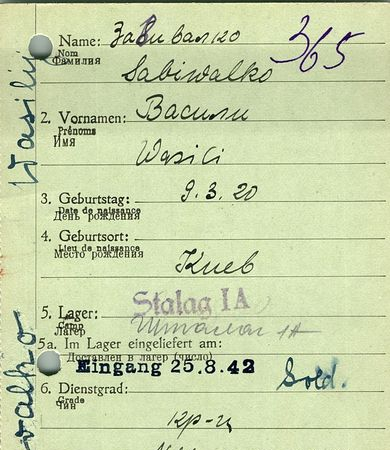 Name: Забивалко 365
Nom
Фамилия
Sabiwalko
2. Vornamen: Василий
Prénoms
Имя
Wasili
3. Geburtstag: 9.3.20
Date de naissance
День рождения
4. Geburtsort:
Lieu de naissance
Место рождения
Киев
5. Lager: Stalag IA
Camp
Лагер Шталаг 1А
5a. Im Lager eingeliefert am:
Доставлен в лагер (число)
Eingang 25.8.42
6. Dienstgrad: Sold.
Grade
Чин
кр-ц
Wasilij